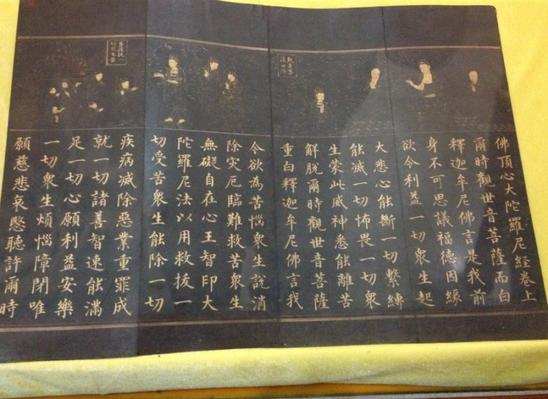 佛頂心大陀羅尼經卷上
爾時觀世音菩薩而白
釋迦牟尼佛言是我前
身不可思議福德因緣
欲令利益一切衆生起
大悲心能斷一切繫縛
能滅一切怖畏一切衆
生蒙此威神悉能離苦
觧脫爾時觀世音菩薩
重白釋迦牟尼佛言我
今欲為苦惱衆生說消
除灾厄臨難救苦衆生
無礙自在心王智印大
陀羅尼法以用救拔一
切受苦衆生能除一切
疾病滅除惡業重罪成
就一切諸善智速能滿
足一切心願利益安樂
一切衆生煩惱障閉唯
願慈悲哀愍聽許爾時